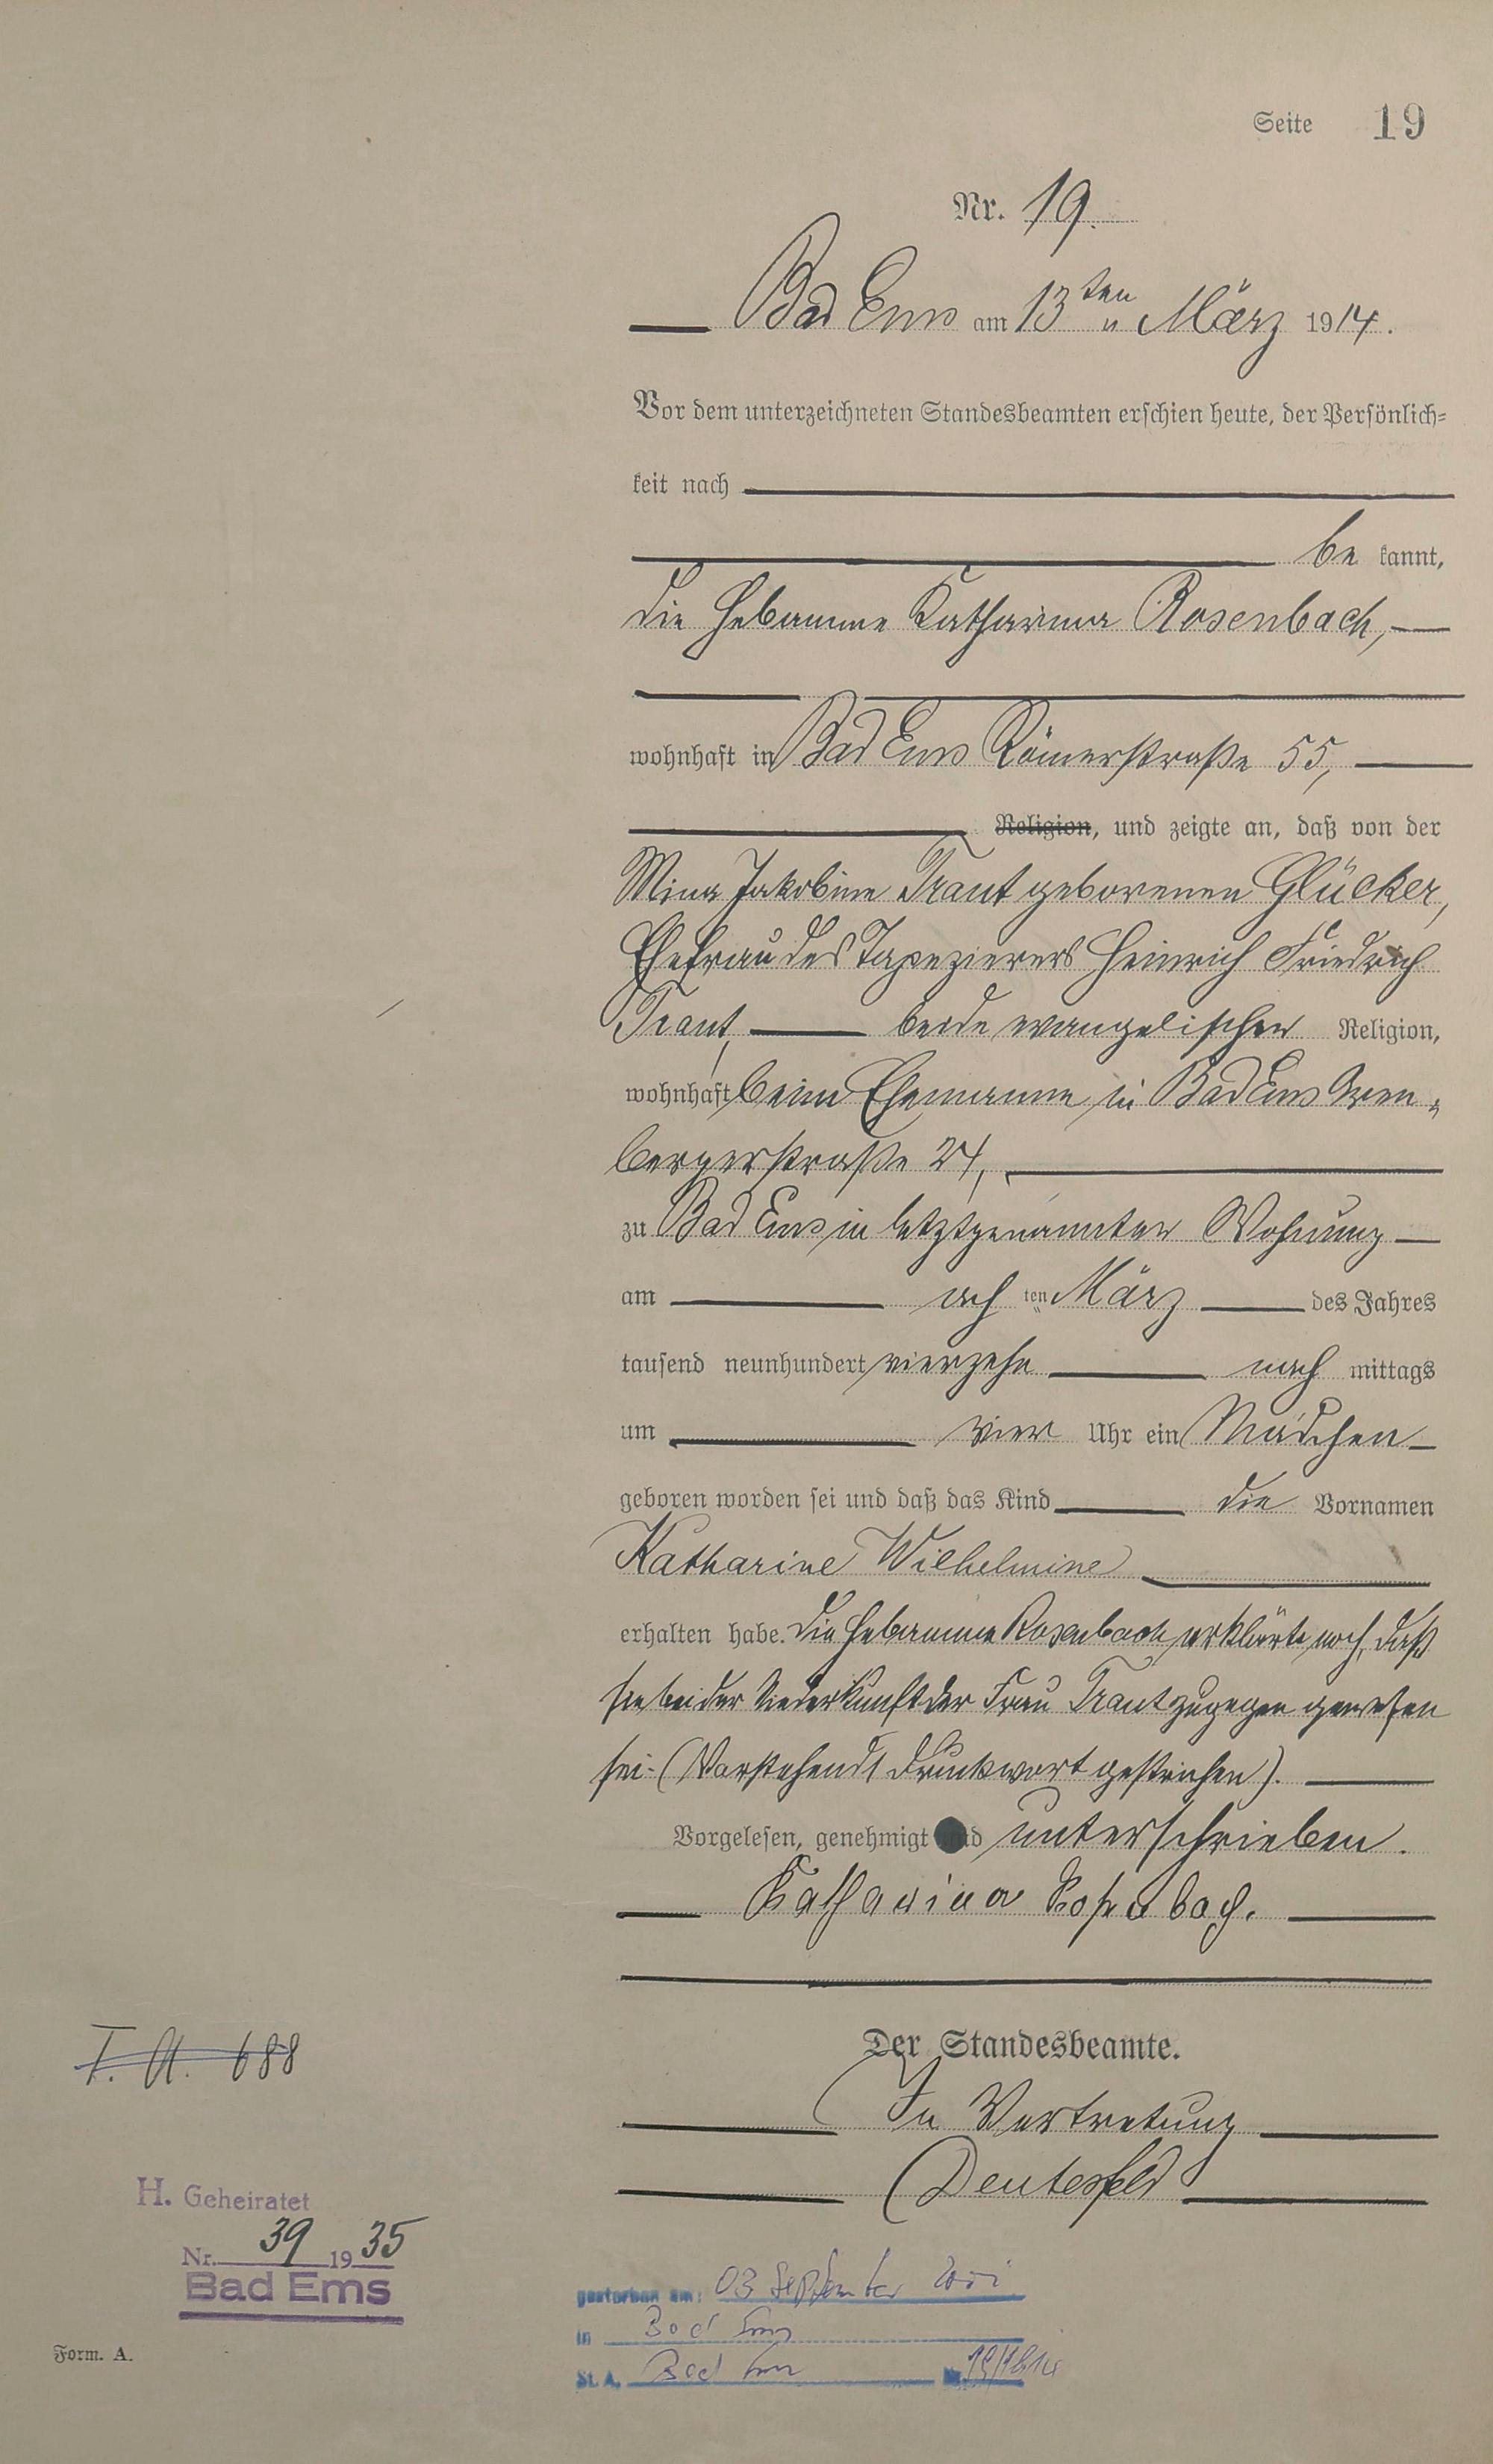 Seite 19
Nr. 19.
Bad Ems am 13ten März 1914.
Vor dem unterzeichneten Standesbeamten erschien heute, der Persönlich=
keit nach
be kannt,
die Hebamme Katharina Rosenbach,
wohnhaft in Bad Ems Römerstraße 55,
Religion, und zeigte an, daß von der
Mina Jakobine Traut geborenen Glücker,
Ehefrau des Tapezierers Heinrich Friedrich
Traut, beide evangelischer Religion,
wohnhaft beim Ehemanne in Bad Ems
bergerstraße 24,
zu Bad Ems in letztgenannter Wohnung
am ach ten März des Jahres
tausend neunhundert vierzehn nach mittags
um vier Uhr ein Mädchen
geboren worden sei und daß das Kind die Vornamen
Katharine Wilhelmine
erhalten habe. Die Hebamme Rosenbach erklärte noch, daß
sie bei der Niederkunft der Frau Traut zugegen gewesen
sei. (Vorstehend 1 Druckwort gestrichen).
Vorgelesen, genehmigt und unterschrieben.
Katharina Rosenbach.
Der Standesbeamte.
In Vertretung
Deutesfeld
688
H. Geheiratet
Nr. 39 1935
Bad Ems
gestorben am: 03 September
in Bad Ems
St. A. Bad Ems Nr.
Form. A.